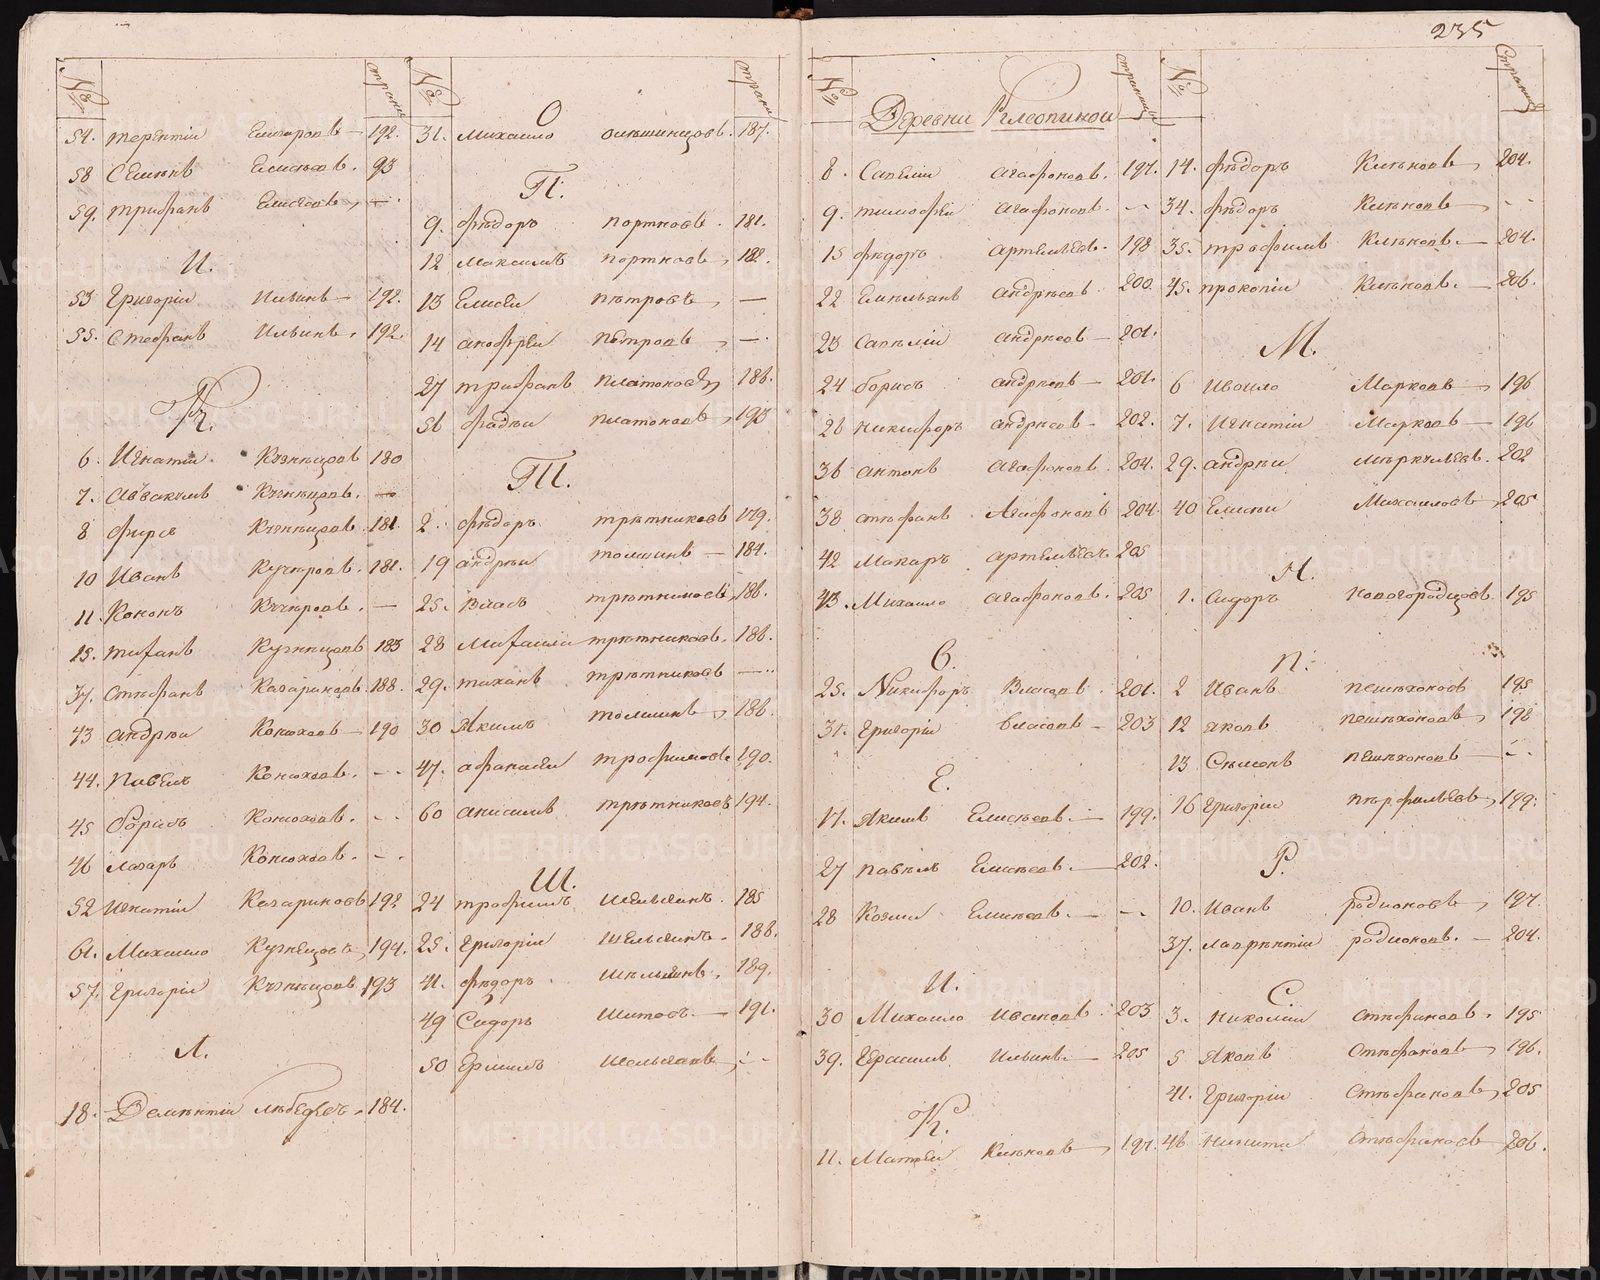 235
№
страниц
54. терентiи 192.
58 Семенъ 93
59. трифанъ
И.
53 Григорiи Ильинъ 192.
55. Стефанъ Ильинъ, 192.
К.
6. Игнатiи Кузнѣцовъ 180
7. Аввакумъ Кузнѣцовъ. —
8 фирсъ Кузнѣцовъ 181
10 Иванъ 181.
11. Кононъ —
15. тифанъ Кузнѣцовъ 183
37. стефанъ Казариновъ 188.
43 андрѣи Конюховъ — 190
44. Павелъ Конюховъ. - -
45 Борисъ Конюховъ. - -
46 лазарь Конюховъ. - -
52 игнатiи Казариновъ 192
61. Михаило Кузнецовъ, 194.
57. Григорiи Кузнѣцовъ 193
Л.
18. Дементiи лѣбедевъ 184.
№
страниц
О
31. Михаило 187.
П.
9. фѣдоръ портновъ. 181.
12 Максимъ портновъ, 182.
13 Елисеи пѣтровъ, —
14 анофреи пѣтровъ, —
27 трифанъ платоновъ, 186.
56 фадѣи платоновъ, 193
Т.
2. фѣдоръ трѣтниковъ 179.
19 андрѣи толшинъ — 184.
25. Власъ трѣтниковъ, 186.
28 трѣтниковъ. 186.
29. тиханъ трѣтниковъ —
30 Якимъ толшинъ, 186.
47. афанасеи трофимовъ. 190.
60 анисимъ трѣтниковъ 194.
Ш.
24 трофимъ шельпинъ. 185
25. григорiи шельпинъ. 188.
41. фѣдоръ 189.
49 Сидоръ Шитовъ. — 191.
50 Ермилъ
№
страниц
Деревни
8. Савелiи агафоновъ. 197.
9. тимофеи агафоновъ. - -
15 фѣдоръ артемьевъ. 198
22 Емельянъ андрѣевъ 200
23 Савелiи андрѣевъ — 201.
24 борисъ андрѣевъ — 201.
26 никифоръ андрѣевъ - 202.
36 антонъ агафоновъ. 204.
38 стѣфанъ Агафоновъ 204
42 Макаръ артемьевъ 205
43. Михаило агафоновъ. 205
В.
25. Никифоръ Власовъ. 201.
31. Григорiи Власовъ — 203
Е.
17. Якимъ Елисѣевъ. — 199.
27 павелъ Елисѣевъ. — 202.
28 Козма Елисѣевъ. — - -
И.
30 Михаило Ивановъ. 203
39. Герасимъ Ильинъ. — 205
К.
11. Матвеи 197.
№
Страниц
14. фѣдоръ 204.
34. фѣдоръ - -
35. трофимъ 204.
45. прокопiи 206.
М.
6 Ивашло Марковъ, 196
7. Игнатiи Марковъ — 196
29. андрѣи мѣркульевъ. 202
40 Елисеи Михаиловъ, 205
Н.
1. Сидоръ новогородцовъ 195
П.
2 Иванъ пешѣхоновъ 195
12 яковъ пешѣхоновъ, 198
13 Сѣменъ пешѣхоновъ —
16 григорiи пѣрфильевъ, 199.
Р.
10. Иванъ родионовъ, 197.
37. лаврѣнтiи родионовъ. — 204.
С.
3. николаи стѣфановъ. 195
5 Яковъ Стѣфановъ, 196.
41. Григорiи стѣфановъ, 205
46 никита стѣфановъ 206.
METRIKI.GASO-URAL.RU